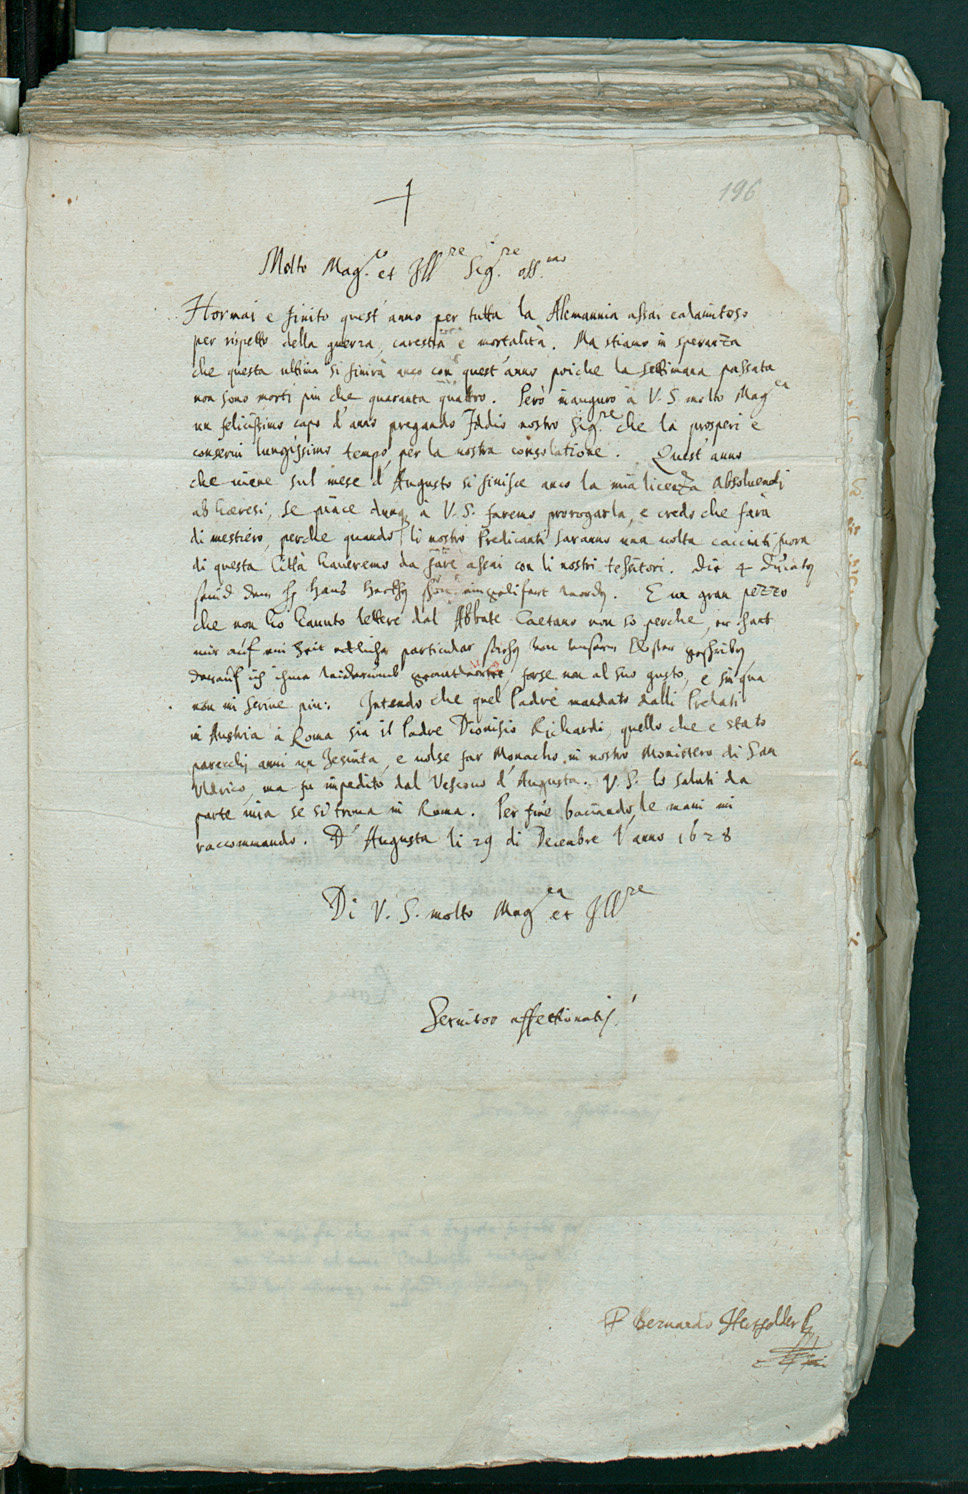 196
Molto Mag.co et Ill.re Sig.re oss.mo
Hormai e finito quest' anno per tutta la Alemannia assai calamitoso
per rispetto della guerra, carestia e mortalità. Ma stiamo in speranza
che questa ultima si finirà anco con quest' anno poiche la settimana passata
non sono morti piu che quaranta quattro. Però inauguro à V. S. molto Mag.ca
un felicissimo capo d'anno pregando Iddio nostro Sig.re che la prosperi e
conserui lungissimo tempo per la nostra consolatione. Quest' anno
che uiene sul mese d' Augusto si finisce anco la mia licenza absoluendi
ab hæresi, se piace dunq à V. S. faremo prorogarla, e credo che farà
di mestiero, perche quando li nostri Predicanti saranno una uolta cacciati fuora
di questa Città haueremo da fare assai con li nostri tessitori. Die 4 Ducaty
seind dem H Hans
E un gran pezzo
che non hò hauuto lettere dal Abbate Caetano non so perche, er hatt
mir auf ein Zeit etliche particular von unserm Closter geschriben
darauf ich ihme widerumb geantwortet, forse non al suo gusto, e sin qua
non mi scriue piu. Intendo che quel Padre mandato dalli Prelati
in Austria à Roma sia il Padre Dionisio Richardi, quello che e stato
parecchi anni un Iesuita, e uolse far Monacho in nostro Monistero di San
Uldrico, ma fu impedito dal Vescouo d' Augusta. V. S. lo saluti da
parte mia se si troua in Roma. Per fine baciando le mani mi
raccommando. D' Augusta li 29 di Decembre l' anno 1628
Di V. S. molto Mag.ca et Ill.re
Seruitor affettionatiss.
P Bernardo Hertfelder